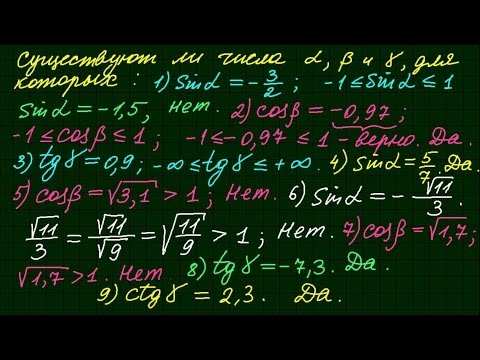 Существуют ли числа α, β и γ, для
которых: 1) Sinα = -3/2; -1 ≤ Sinα ≤ 1
Sinα = -1,5, нет. 2) cosβ = -0,97;
-1 ≤ cosβ ≤ 1; -1 ≤ -0,97 ≤ 1 - верно. Да.
3) tgγ = 0,9; -∞ ≤ tgγ ≤ +∞. 4) Sinα = 5/7. Да.
5) cosβ = √3,1 > 1; Нет. 6) Sinα = -√11/3.
√11/3 = √11/√9 = √(11/9) > 1; Нет. 7) cosβ = √1,7;
√1,7 > 1. Нет. 8) tgγ = -7,3. Да.
9) ctgγ = 2,3. Да.